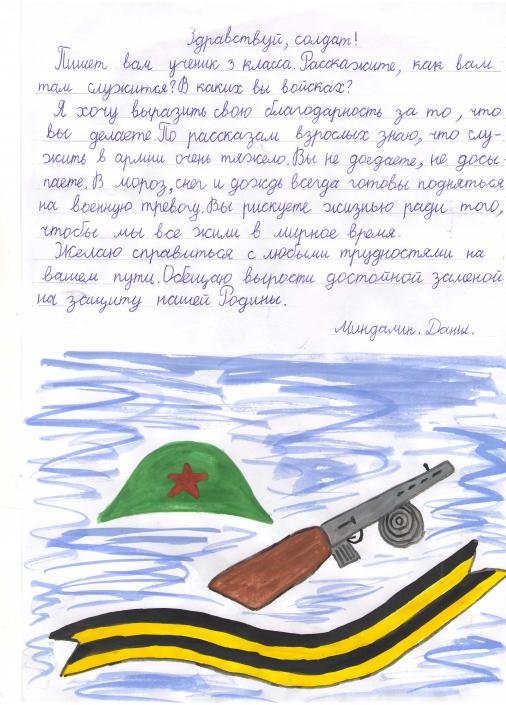 Здравствуй, солдат!
Пишет вам ученик 3 класса. Расскажите, как вам
там служится? В каких вы войсках?
Я хочу выразить свою благодарность за то, что
вы делаете. По рассказам взрослых знаю, что слу-
жить в армии очень тяжело. Вы не доедаете, не досы-
паете. В мороз, снег и дождь всегда готовы подняться
на военную тревогу. Вы рискуете жизнью ради того,
чтобы мы все жили в мирное время.
Желаю справиться с любыми трудностями на
вашем пути. Обещаю вырасти достойной заменой
на защиту нашей Родины.